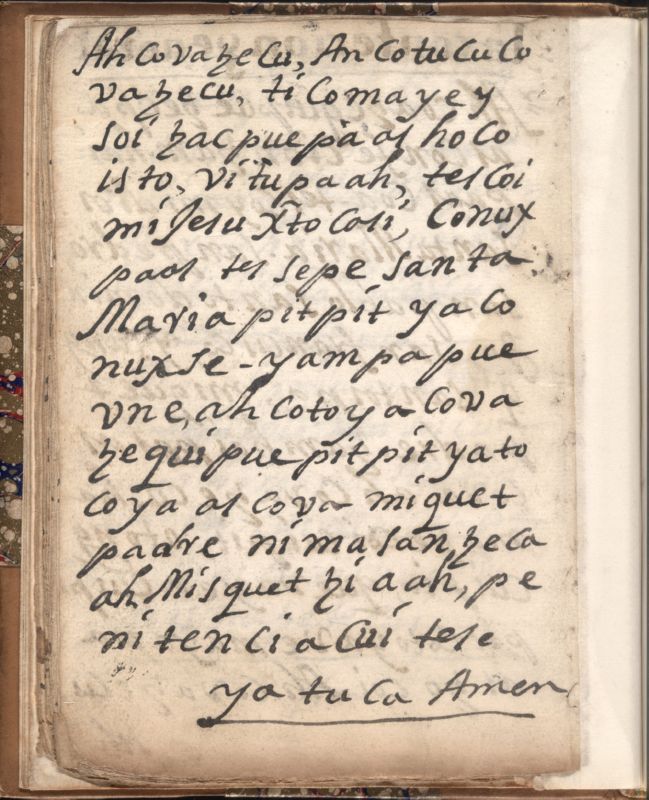 Ah cova hecu, An cotucu co
va hecu, ti comayey
soi hac puepa as ho co
isto, vitupaah, tescoi
mi Jesu Xp̃to casi, conux
paas tes sepe santa
Maria pitpit yaco
nuxse - yampa pue
vne, ah cotoya cova
hequi pue pitpit yato
coya as cova miquet
padre nima san, heca
ah Misquet hi aah, pe
nitencia cui tese
ya tuca Amen